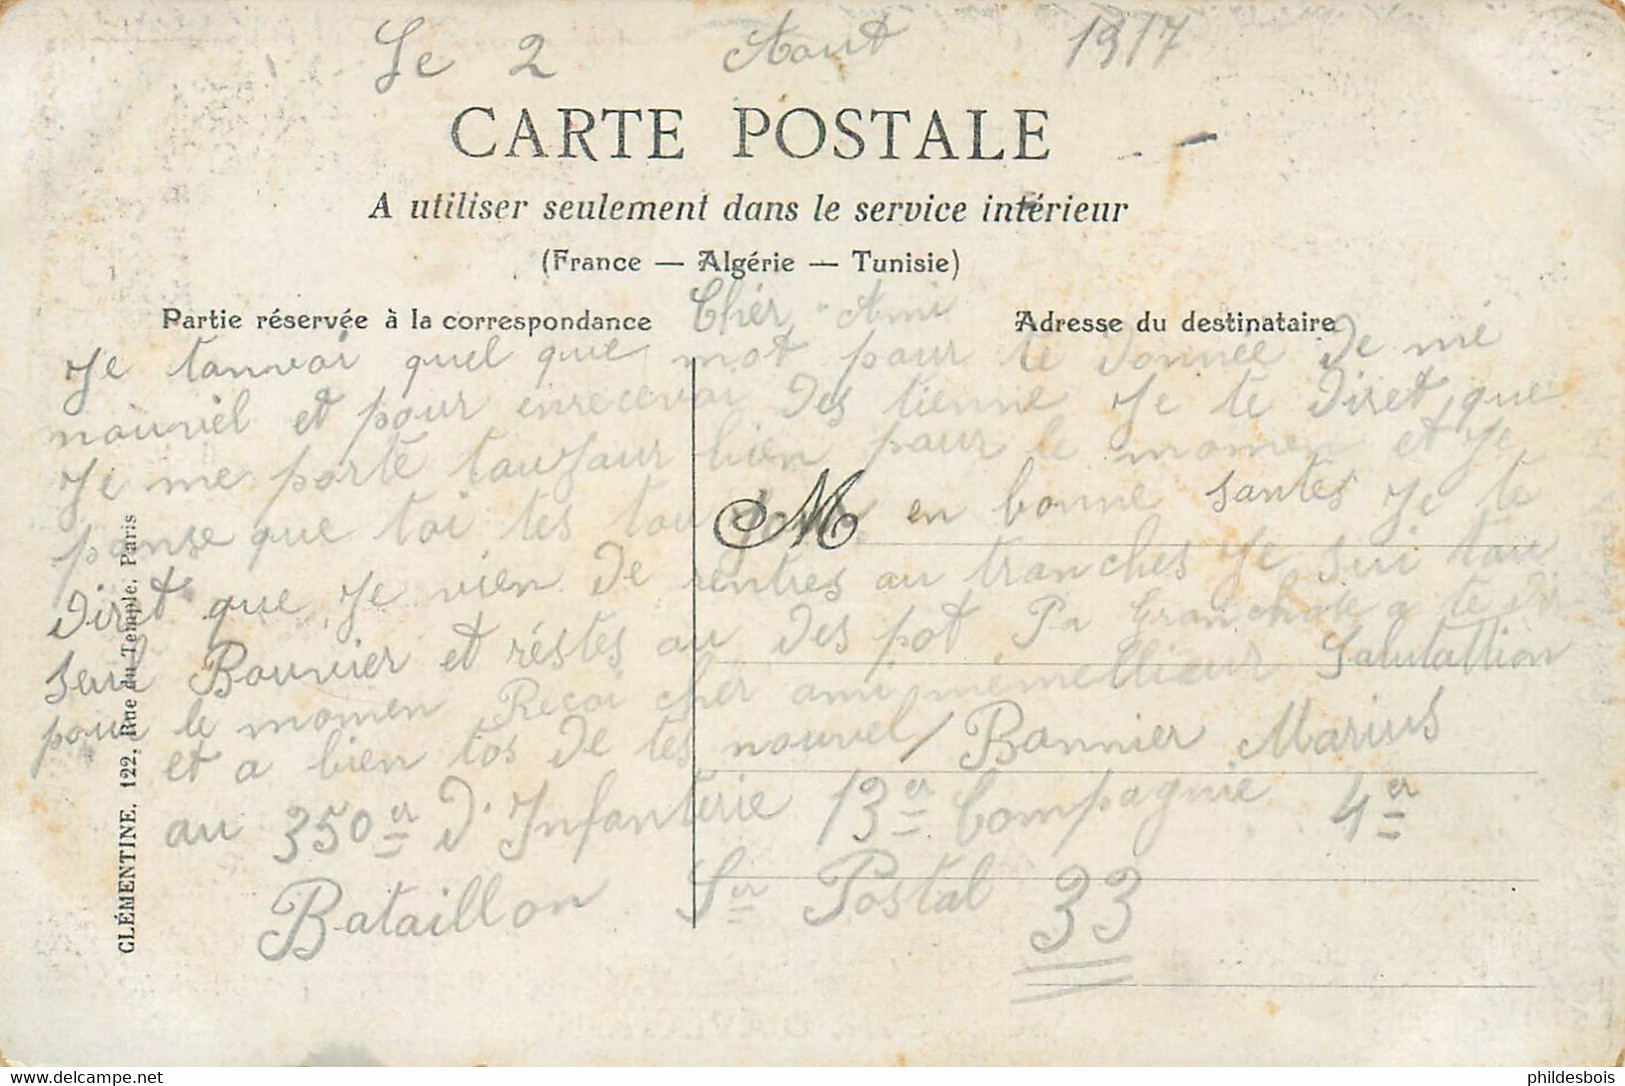 Le 2 Aout 1917
CARTE POSTALE
A utiliser seulement dans le service intérieur
(France — Algérie — Tunisie)
Partie réservée à la correspondance
Chér Ami
Adresse du destinataire
Je tanvoi quel que mot pour te donnée de mé
nouvel et pour enrecevoi des tienne Je te diret que
Je me porte toujour bien pour le momen et Je
panse que toi tes toujour en bonne santes Je te
M
diret que Je vien de rentres au tranches Je sui tou
seul Bouvier et réstes au des pot Pa a te dir
pour le momen Reçoi cher ami mémellieur Salutattion
et a bien tos de tes nouvel / Bonnier Marius
au 350er d'Infanterie 13er Compagnie 4er
Bataillon Ser Postal 33
CLÉMENTINE, 122, Rue du Temple, Paris
phildesbois